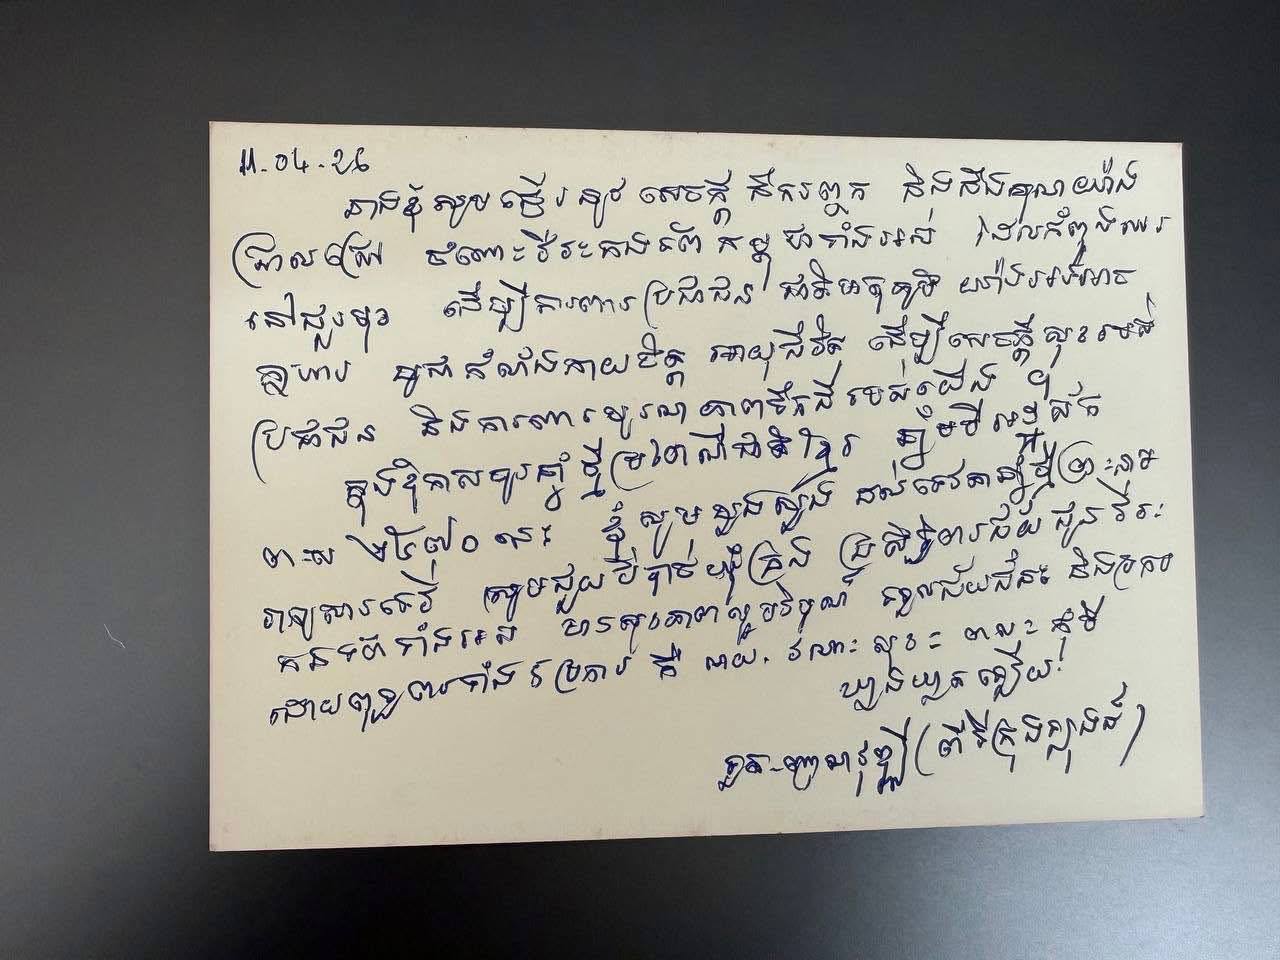 11-04-26
នាងខ្ញុំសូមផ្ញើរនូវ សេចក្តី នឹករព្ញក និងដឹងគុណយ៉ាង
ជ្រាលជ្រៅ ចំពោះវីរៈកងទ័ព កម្ពុជាទាំងអស់ ដែលកំពុងឈរ
នៅជួរមុខ ដើម្បីការពារប្រជាជន ជាតិមាតុភូមិ យ៉ាងអង់អាច
ក្លាហាន បូជាកំលាំងកាយចិត្ត អាយុជីវិត ដើម្បីសេចក្តីសុខរបស់
ប្រជាជន និងការពារបូរណភាពទឹកដីរបស់យើង ។
ក្នុងឱកាសចូលឆ្នាំថ្មីប្រពៃណីជាតិខ្មែរ ឆ្នាំមមី អដ្ឋស័ក
ព.ស ២៥៧០ នេះ ខ្ញុំសូមបួងសួង ដល់ទេវតាឆ្នាំថ្មីព្រះនាម
សូមជួយបីបាច់ថែរក្សា ប្រសិទ្ធិពរជ័យ ជូនវីរៈ
កងទ័ពទាំងអស់ មានសុខភាពល្អបរិបូណ៌ ទទួលជ័យជំនះ និងប្រកប
ដោយពុទ្ធពរទាំង ៥ ប្រការ គឺ អាយុ. វណ្ណៈ សុខៈ ពលៈ កុំបី
ឃ្លាងឃ្លាតឡើយ.